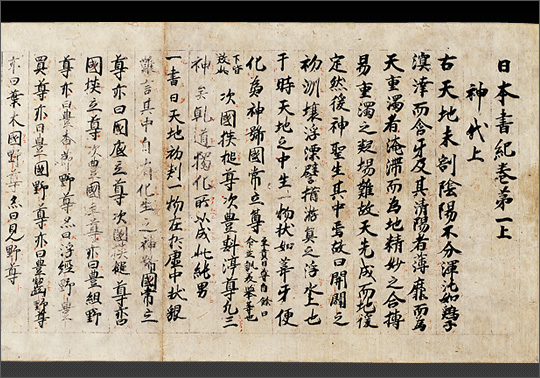 日本書紀巻第一上
神代上
古天地未剖陰陽不分渾沌如鶏子
溟涬而含牙及其清陽者薄靡而為
天重濁者淹滞而為地精妙之合搏
易重濁之凝埸難故天先成而地後
定然後神聖生其中焉故曰開闢之
初洲壤浮漂譬猶游魚之浮水上也
于時天地之中生一物状如葦牙便
化為神號國常立尊至貴曰尊自餘曰命並訓美挙等也
下皆效此次國狹槌尊次豊斟渟尊凡三
神矣乾道獨化所以成此純男
一書曰天地初判一物在於虚中状貌
難言其中自有化生之神號國常立
尊亦曰國底立尊次國狹槌尊亦曰
國狹立尊次豊國主尊亦曰豊組野
尊亦曰豊香節野尊亦曰浮経野豊
買尊亦曰豊國野尊亦曰豊齧野尊
亦曰葉木國野尊亦曰見野尊